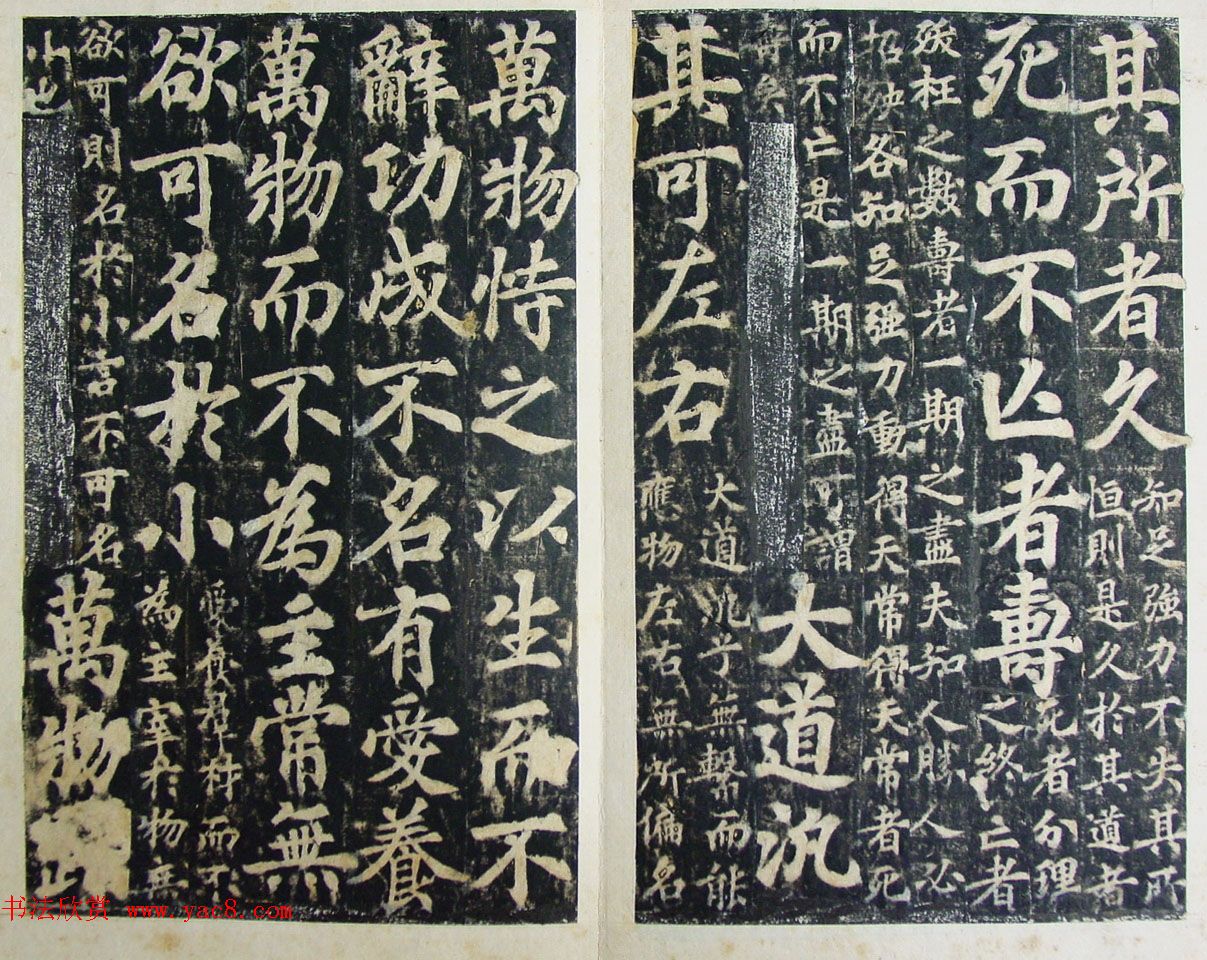 其所者久
知足強力不失其所
恒則是久於其道者
死而不亡者壽
死者分理
之終亡者
殀枉之數壽者一期之盡夫知人勝人必
招殃各知足强力動得天常得天常者死
而不亡是一期之盡可謂
壽矣
大道汎
其可左右
大道汎乎無繫而能
應物左右無所偏名
萬物恃之以生而不
辭功成不名有愛養
萬物而不為主常無
欲可名於小
愛養群材而不
為主宰於物無
欲可則名於小言不可名
小也
萬物
书法欣赏 www.yac8.com